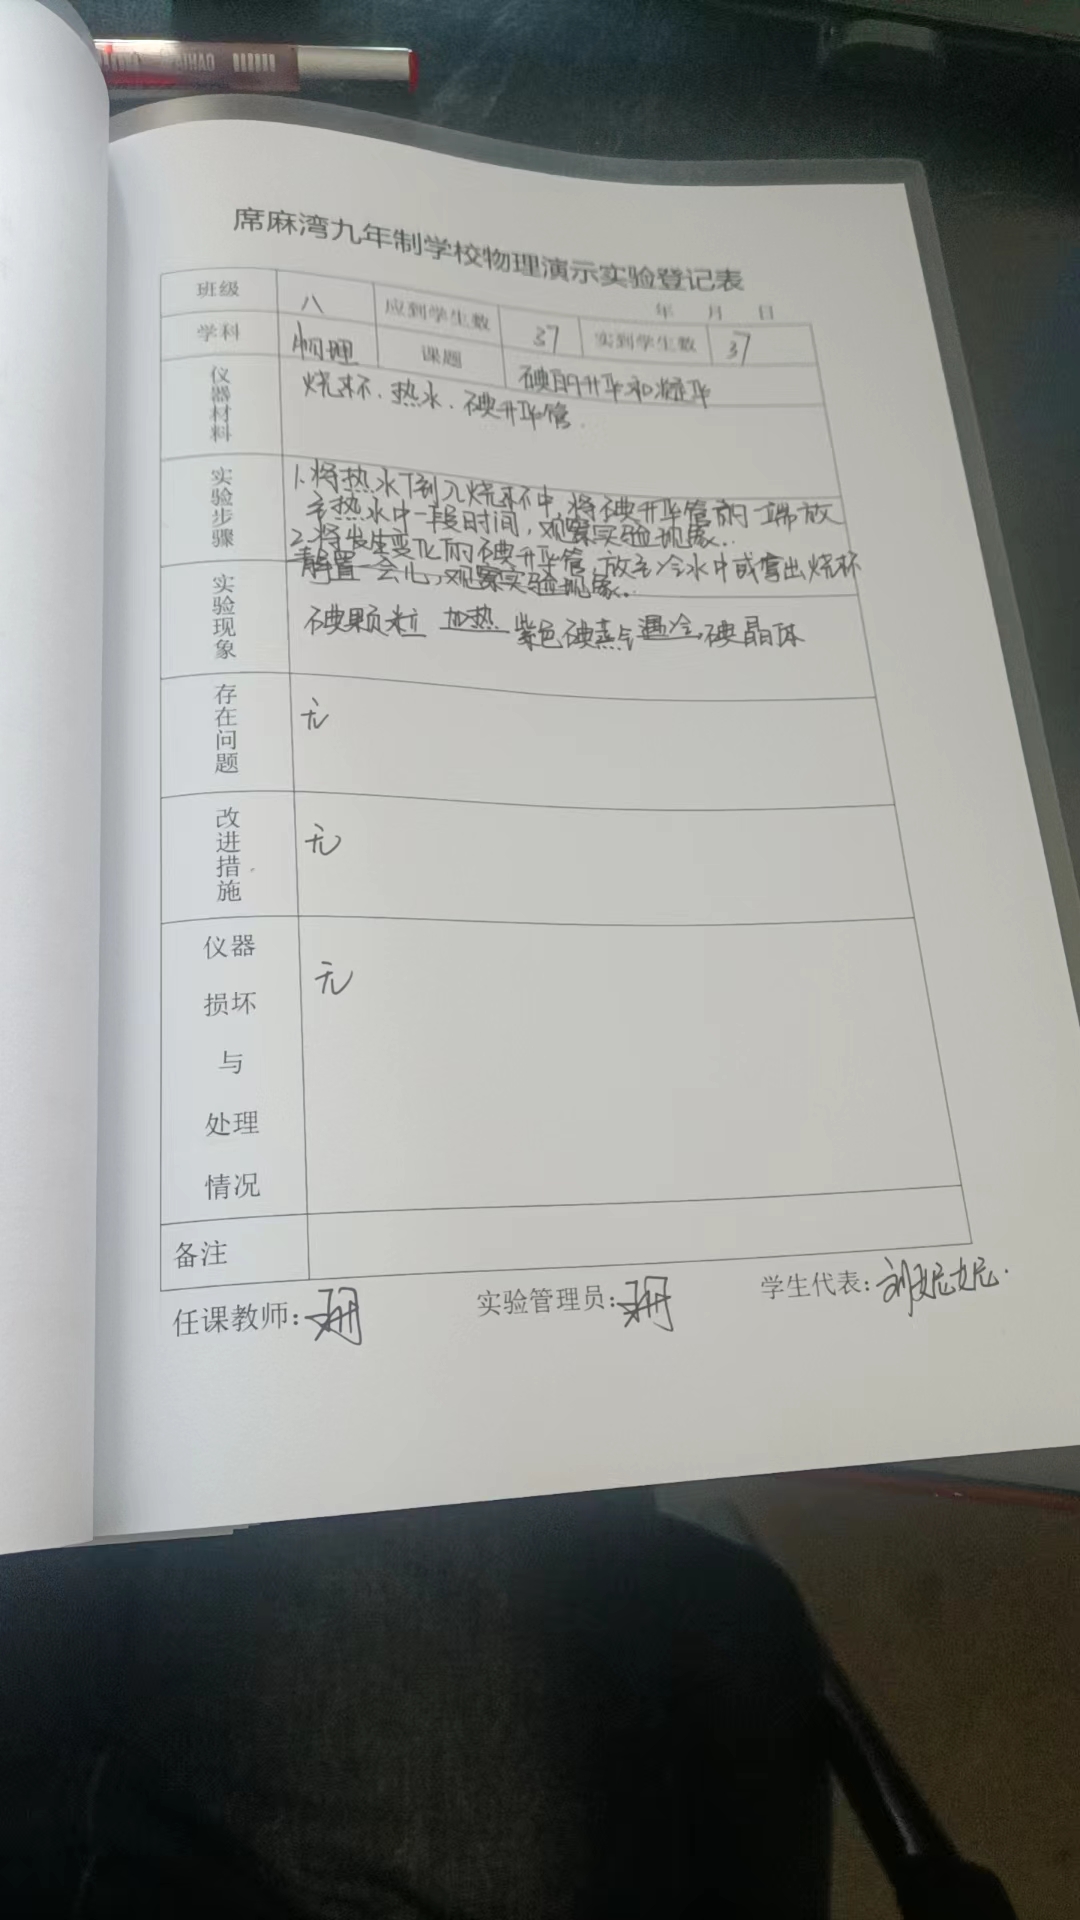 席麻湾九年制学校物理演示实验登记表
年 月 日
班级 八 应到学生数 37 实到学生数 37
学科 物理 课题 碘的升华和凝华
仪器材料 烧杯、热水、碘升华管
实验步骤 1.将热水倒入烧杯中,将碘升华管的一端放
至热水中一段时间,观察实验现象..
2.将发生变化的碘升华管,放至冷水中或拿出烧杯
静置一会儿,观察实验现象。
实验现象 碘颗粒 加热 紫色碘蒸气 遇冷 碘晶体
存在问题 无
改进措施 无
仪器 无
损坏
与
处理
情况
备注
任课教师: 实验管理员: 学生代表:刘妮妮